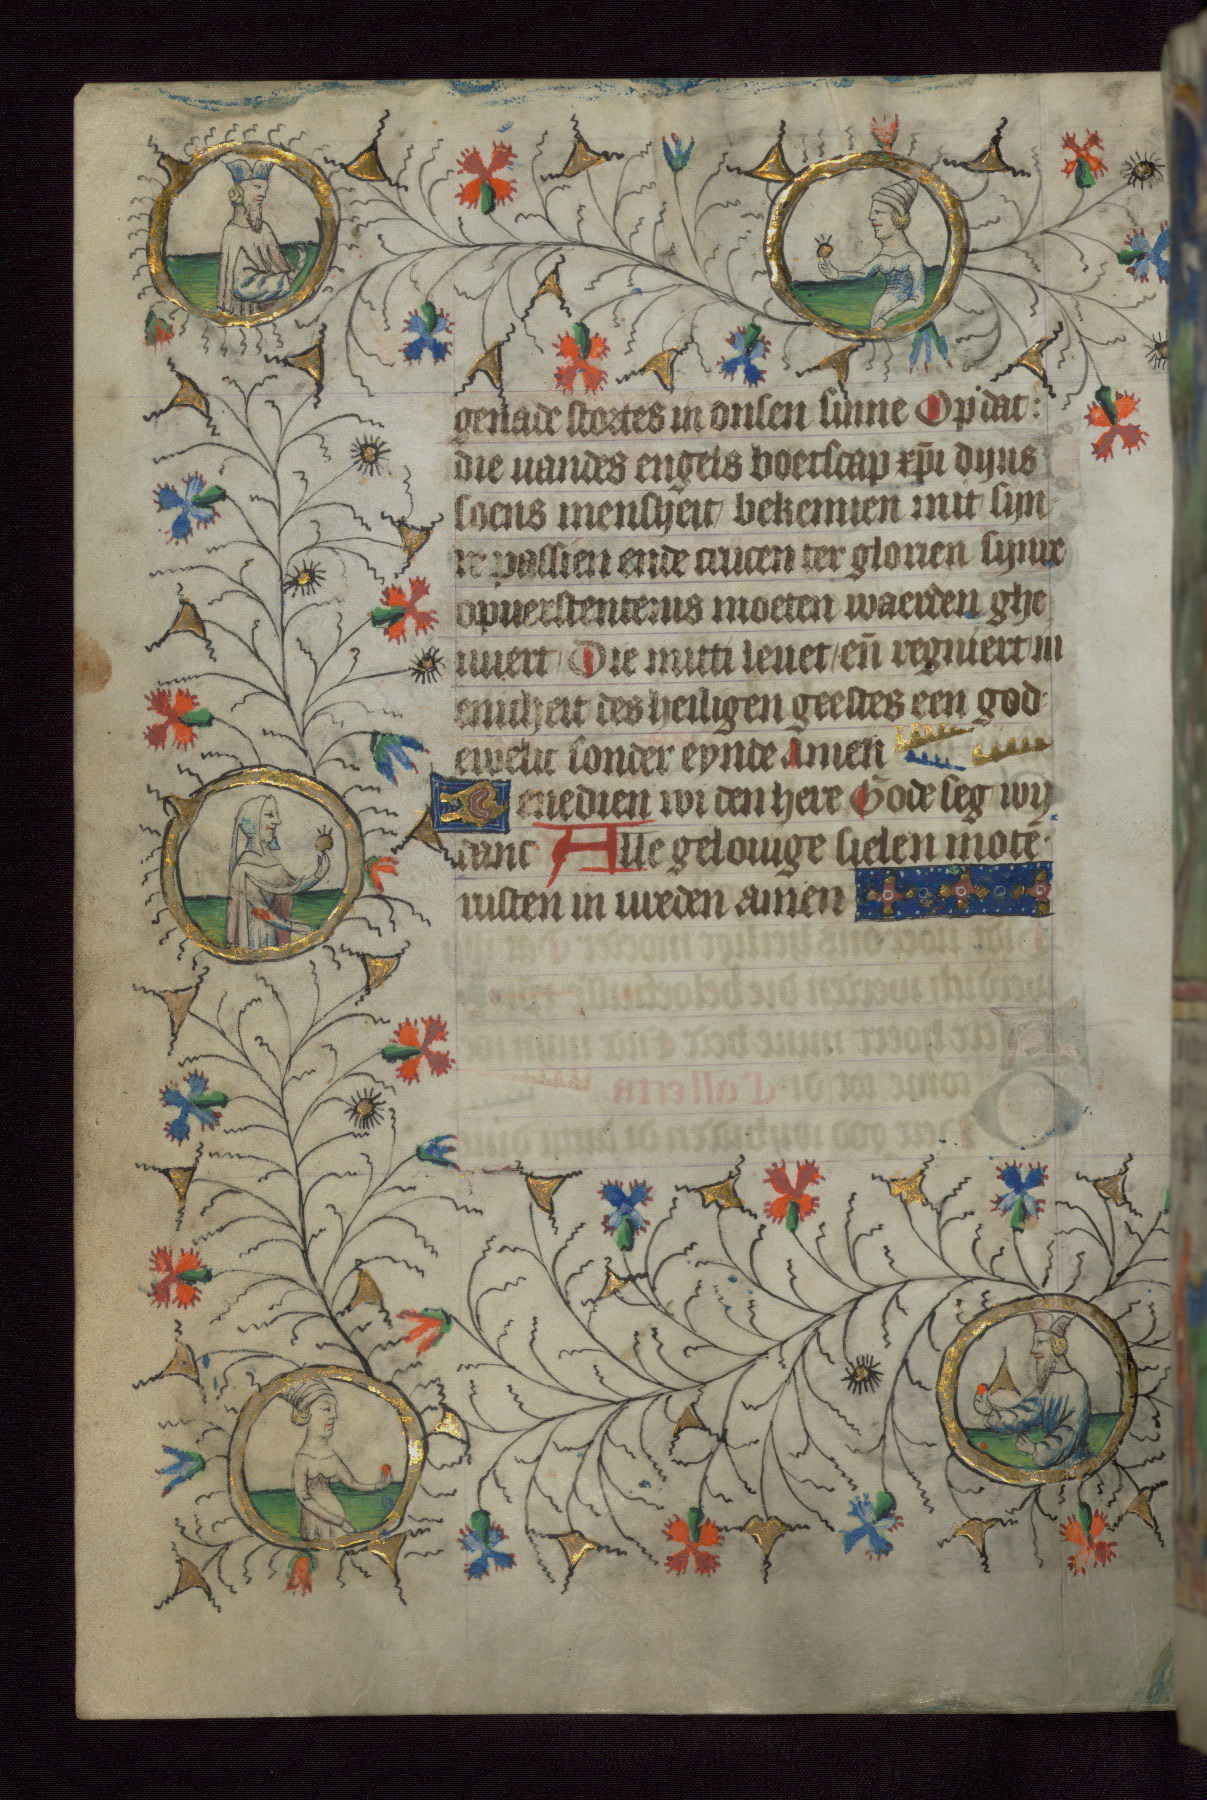 genade stortes in onsen sinne Op dat:
die uandes engels boetscap xp̄i dijns
soens mensheit bekennen mit sijn
re passien ende crucen ter glorien sijnre
opuerstentenis moeten waerden ghe
uuert Die mitti leuet / en̄ regniert in
enicheit des heiligen geestes een god
ewelic sonder eynde Amen
Benedien wi den here Gode seg wij
danc Alle gelouige sielen motē
rusten in vreden amen
Collecta